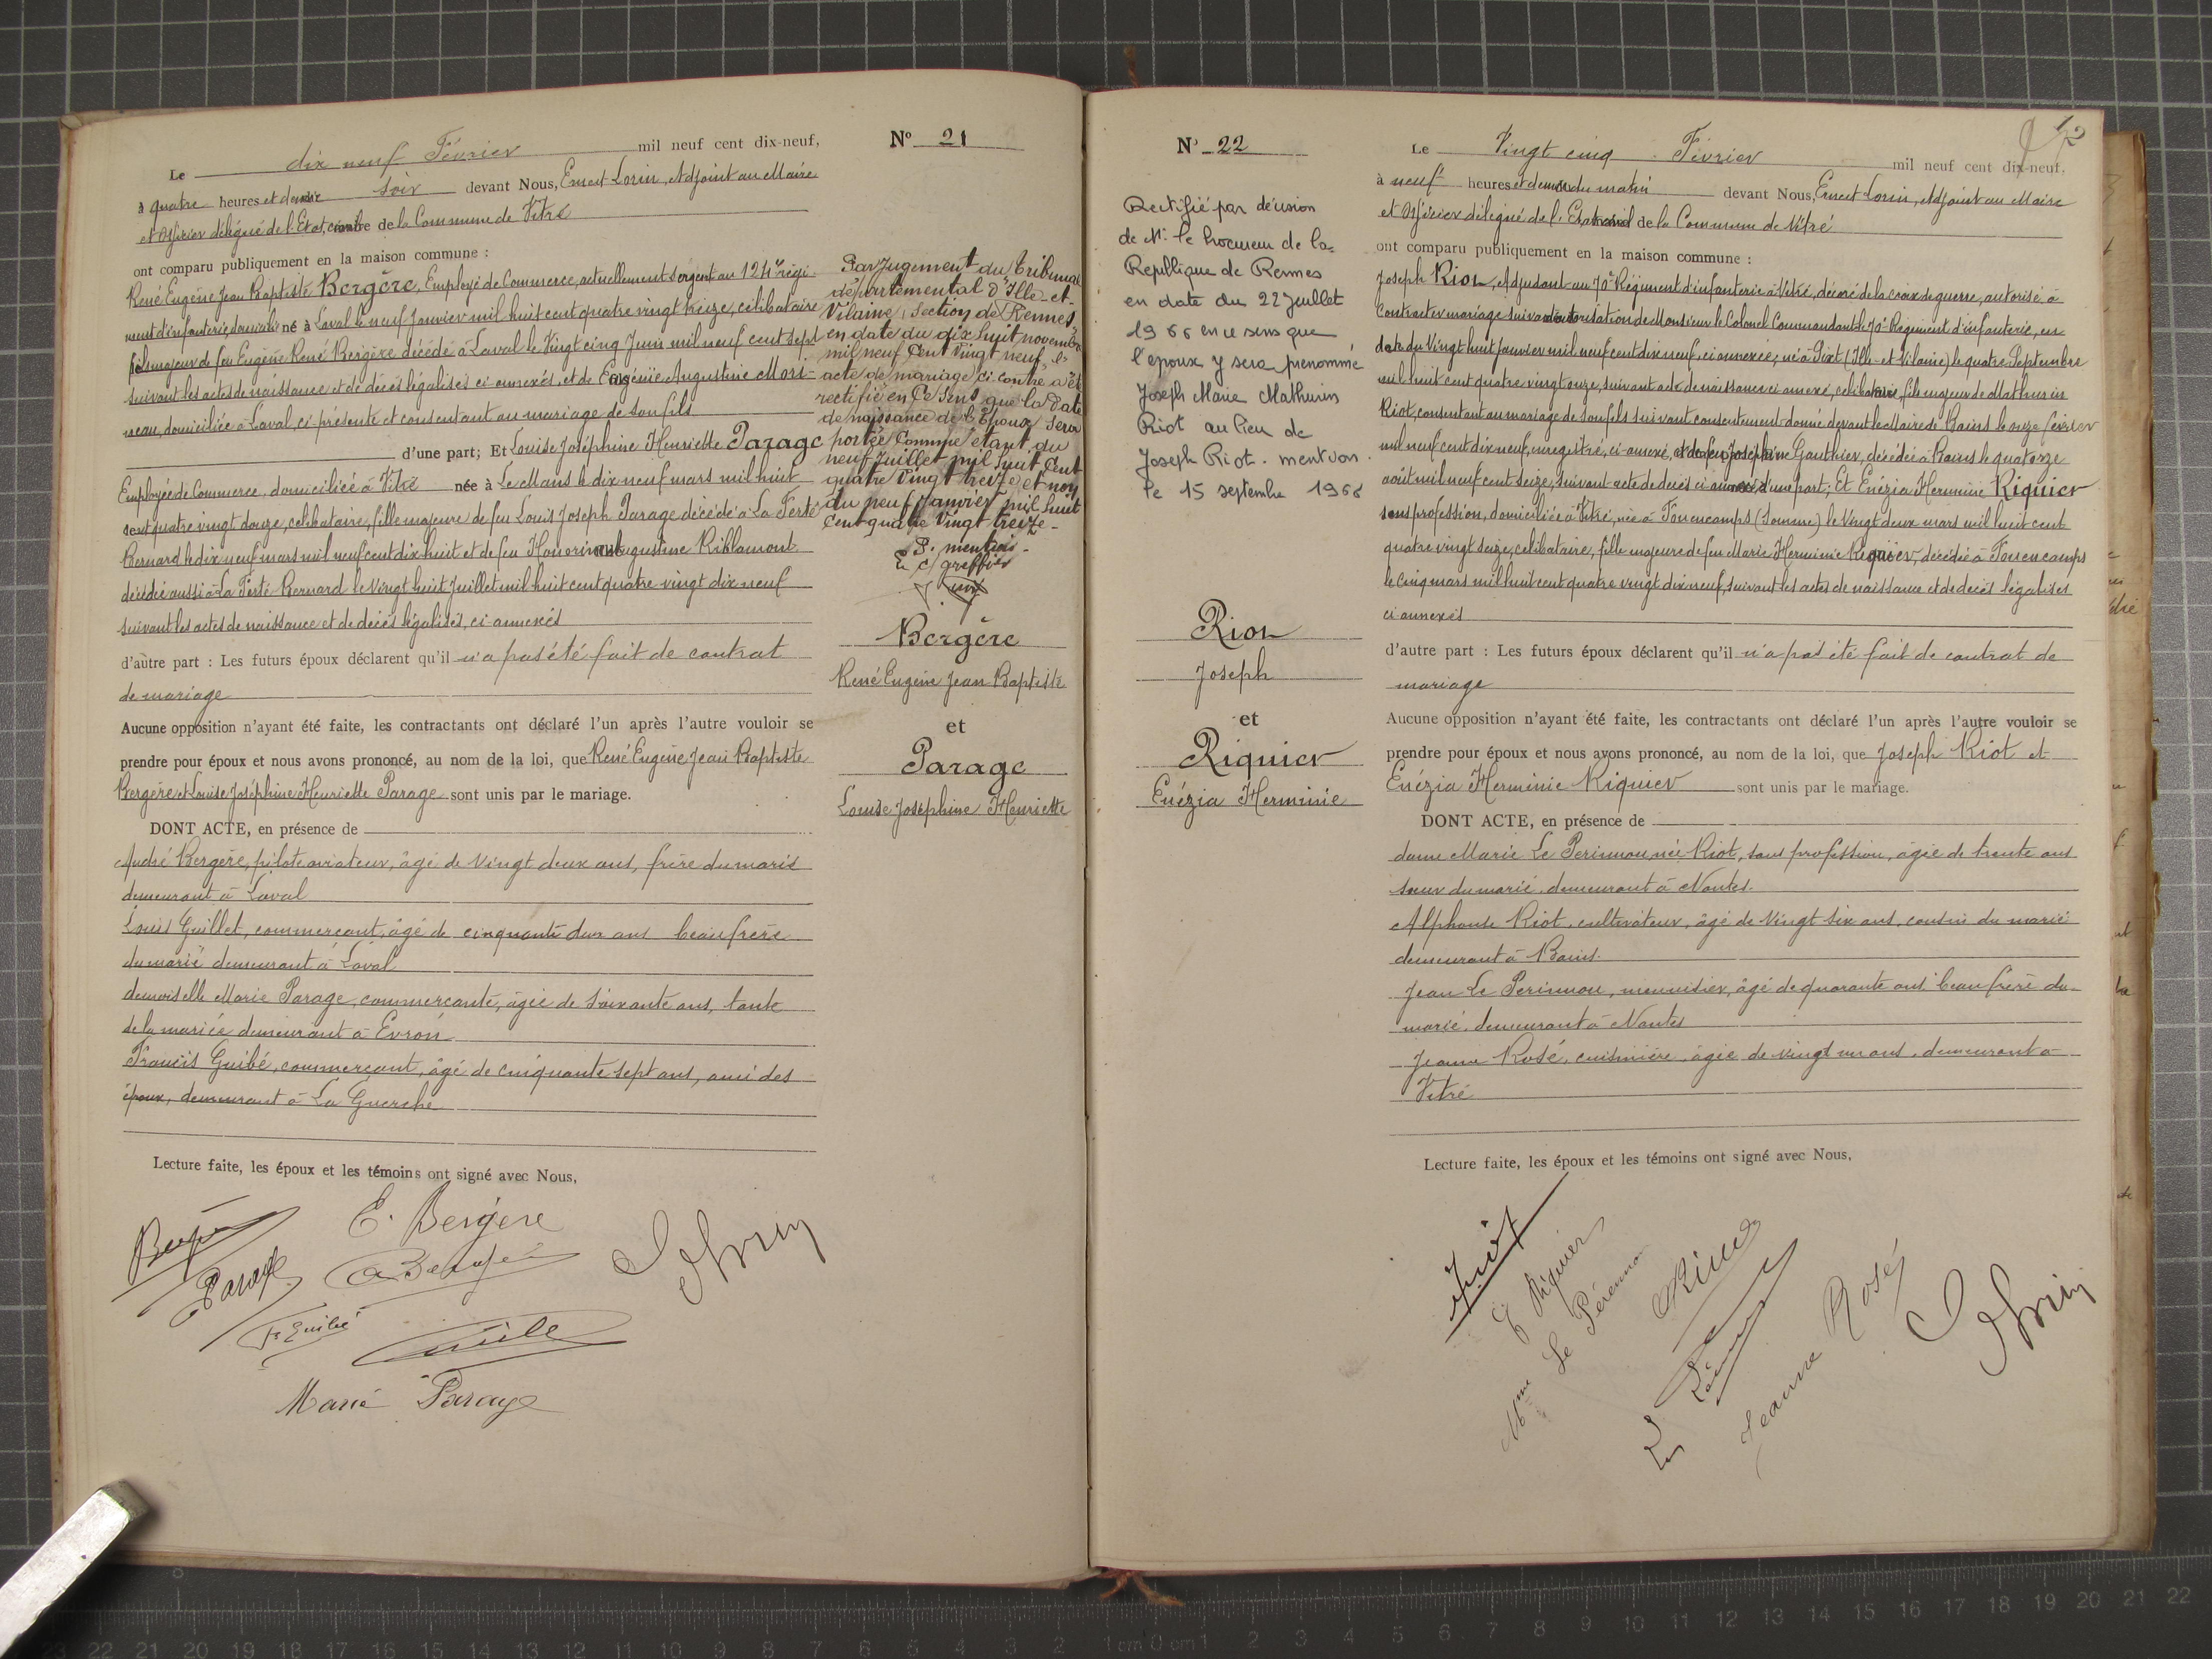 Le dix neuf Février mil neuf cent dix-neuf,
à quatre heures et demie soir devant Nous, Ernest Lorin, Adjoint au Maire
et Officier délégué de l'Etat civil de la Commune de Vitré
ont comparu publiquement en la maison commune :
René Eugène Jean Baptiste Bergère, Employé de Commerce, actuellement sergent au 124e régi-
ment d'infanterie, domicilié né à Laval le neuf Janvier mil huit cent quatre vingt treize, célibataire
fils majeur de feu Eugène René Bergère décédé à Laval le Vingt cinq Juin mil neuf cent sept
suivant les actes de naissance et de décès légalisés ci annexés, et de Eugénie Augustine Mori-
neau, domiciliée à Laval, ci-présente et consentant au mariage de son fils
d'une part; Et Louise Joséphine Henriette Parage
Employée de Commerce, domiciliée à Vitré née à Le Mans le dix neuf mars mil huit
cent quatre vingt douze, célibataire, fille majeure de feu Louis Joseph Parage décédé à La Ferté
Bernard le dix neuf mars mil neuf cent dix huit et de feu Honorine Augustine Riblamont
décédée aussi à La Ferté Bernard le Vingt huit Juillet mil huit cent quatre vingt dix neuf
suivant les actes de naissance et de décès légalisés, ci annexés
d'autre part : Les futurs époux déclarent qu'il n'a pas été fait de contrat
de mariage
Aucune opposition n'ayant été faite, les contractants ont déclaré l'un après l'autre vouloir se
prendre pour époux et nous avons prononcé, au nom de la loi, que René Eugène Jean Baptiste
Bergère et Louise Joséphine Henriette Parage sont unis par le mariage.
DONT ACTE, en présence de
André Bergère, pilote aviateur, âgé de Vingt deux ans, frère du marié
demeurant à Laval
Louis Guillet, commerçant, âgé de cinquante deux ans beau frère
du marié demeurant à Laval
demoiselle Marie Parage, commerçante, âgée de soixante ans, tante
de la mariée demeurant à Evron
Francis Guibé, commerçant, âgé de cinquante sept ans, ami des
époux, demeurant à La Guerche
Lecture faite, les époux et les témoins ont signé avec Nous,
E. Bergère
Parage
Fs Guibé
Marie Parage
N° 21
Par Jugement du Tribunal
départemental d'Ille-et-
Vilaine, Section de Rennes
en date du dix huit novembre
mil neuf Cent Vingt neuf, l'
acte de mariage ci-contre a été
rectifié en Ce Sens que la Date
de naissance de l'Epoux Sera
portée Comme étant du
neuf Juillet mil huit Cent
quatre Vingt treize et non
du neuf Janvier mil huit
Cent quatre Vingt treize -
P. mention -
Le C/ greffier
Bergère
René Eugène Jean Baptiste
et
Parage
Louise Joséphine Henriette
N° 22
Rectifié par décision
de Mr le Procureur de la
République de Rennes
en date du 22 Juillet
1966 en ce sens que
l'époux y sera prénommé
Joseph Marie Mathurin
Riot au lieu de
Joseph Riot. mention
le 15 septembre 1966
Riot
Joseph
et
Riquier
Enézia Herminie
12
Le Vingt cinq Février mil neuf cent dix-neuf,
à neuf heures et demie du matin devant Nous, Ernest Lorin, Adjoint au Maire
et Officier délégué de l'Etat civil de la Commune de Vitré
ont comparu publiquement en la maison commune :
Joseph Riot, Adjudant au 70e Régiment d'infanterie à Vitré, décoré de la croix de guerre, autorisé à
contracter mariage suivant autorisation de Monsieur le Colonel Commandant le 70e Régiment d'infanterie, en
date du Vingt huit Janvier mil neuf cent dix neuf, ci annexée, né à Pixé (Ille-et-Vilaine) le quatre Septembre
mil huit cent quatre vingt onze, suivant acte de naissance ci annexé, célibataire, fils majeur de Mathurin
Riot, consentant au mariage de son fils suivant consentement donné devant le Maire de Bains le onze février
mil neuf cent dix neuf, enregistré, ci-annexé, et de feu Joséphine Gauthier, décédée à Bains le quatorze
août mil neuf cent seize, suivant acte de décès ci annexé d'une part; Et Enézia Herminie Riquier
sans profession, domiciliée à Vitré, née à Fouencamps (Somme) le Vingt deux mars mil huit cent
quatre vingt seize, célibataire, fille majeure de feu Marie Herminie Riquier, décédée à Fouencamps
le cinq mars mil huit cent quatre vingt dix neuf, suivant les actes de naissance et de décès légalisés
ci annexés
d'autre part : Les futurs époux déclarent qu'il n'a pas été fait de contrat de
mariage
Aucune opposition n'ayant été faite, les contractants ont déclaré l'un après l'autre vouloir se
prendre pour époux et nous avons prononcé, au nom de la loi, que Joseph Riot et
Enézia Herminie Riquier sont unis par le mariage.
DONT ACTE, en présence de
dame Marie Le Perinnou née Riot, sans profession, âgée de trente ans
sœur du marié, demeurant à Nantes.
Alphonse Riot, cultivateur, âgé de Vingt six ans, cousin du marié
demeurant à Bains.
Jean Le Perinnou, menuisier, âgé de quarante ans, beau frère du
marié, demeurant à Nantes
Jeanne Rosé, cuisinière, âgée de vingt un ans, demeurant à
Vitré
Lecture faite, les époux et les témoins ont signé avec Nous,
Riot
E Riquier
Mme Le Pérennou
Jeanne Rosé